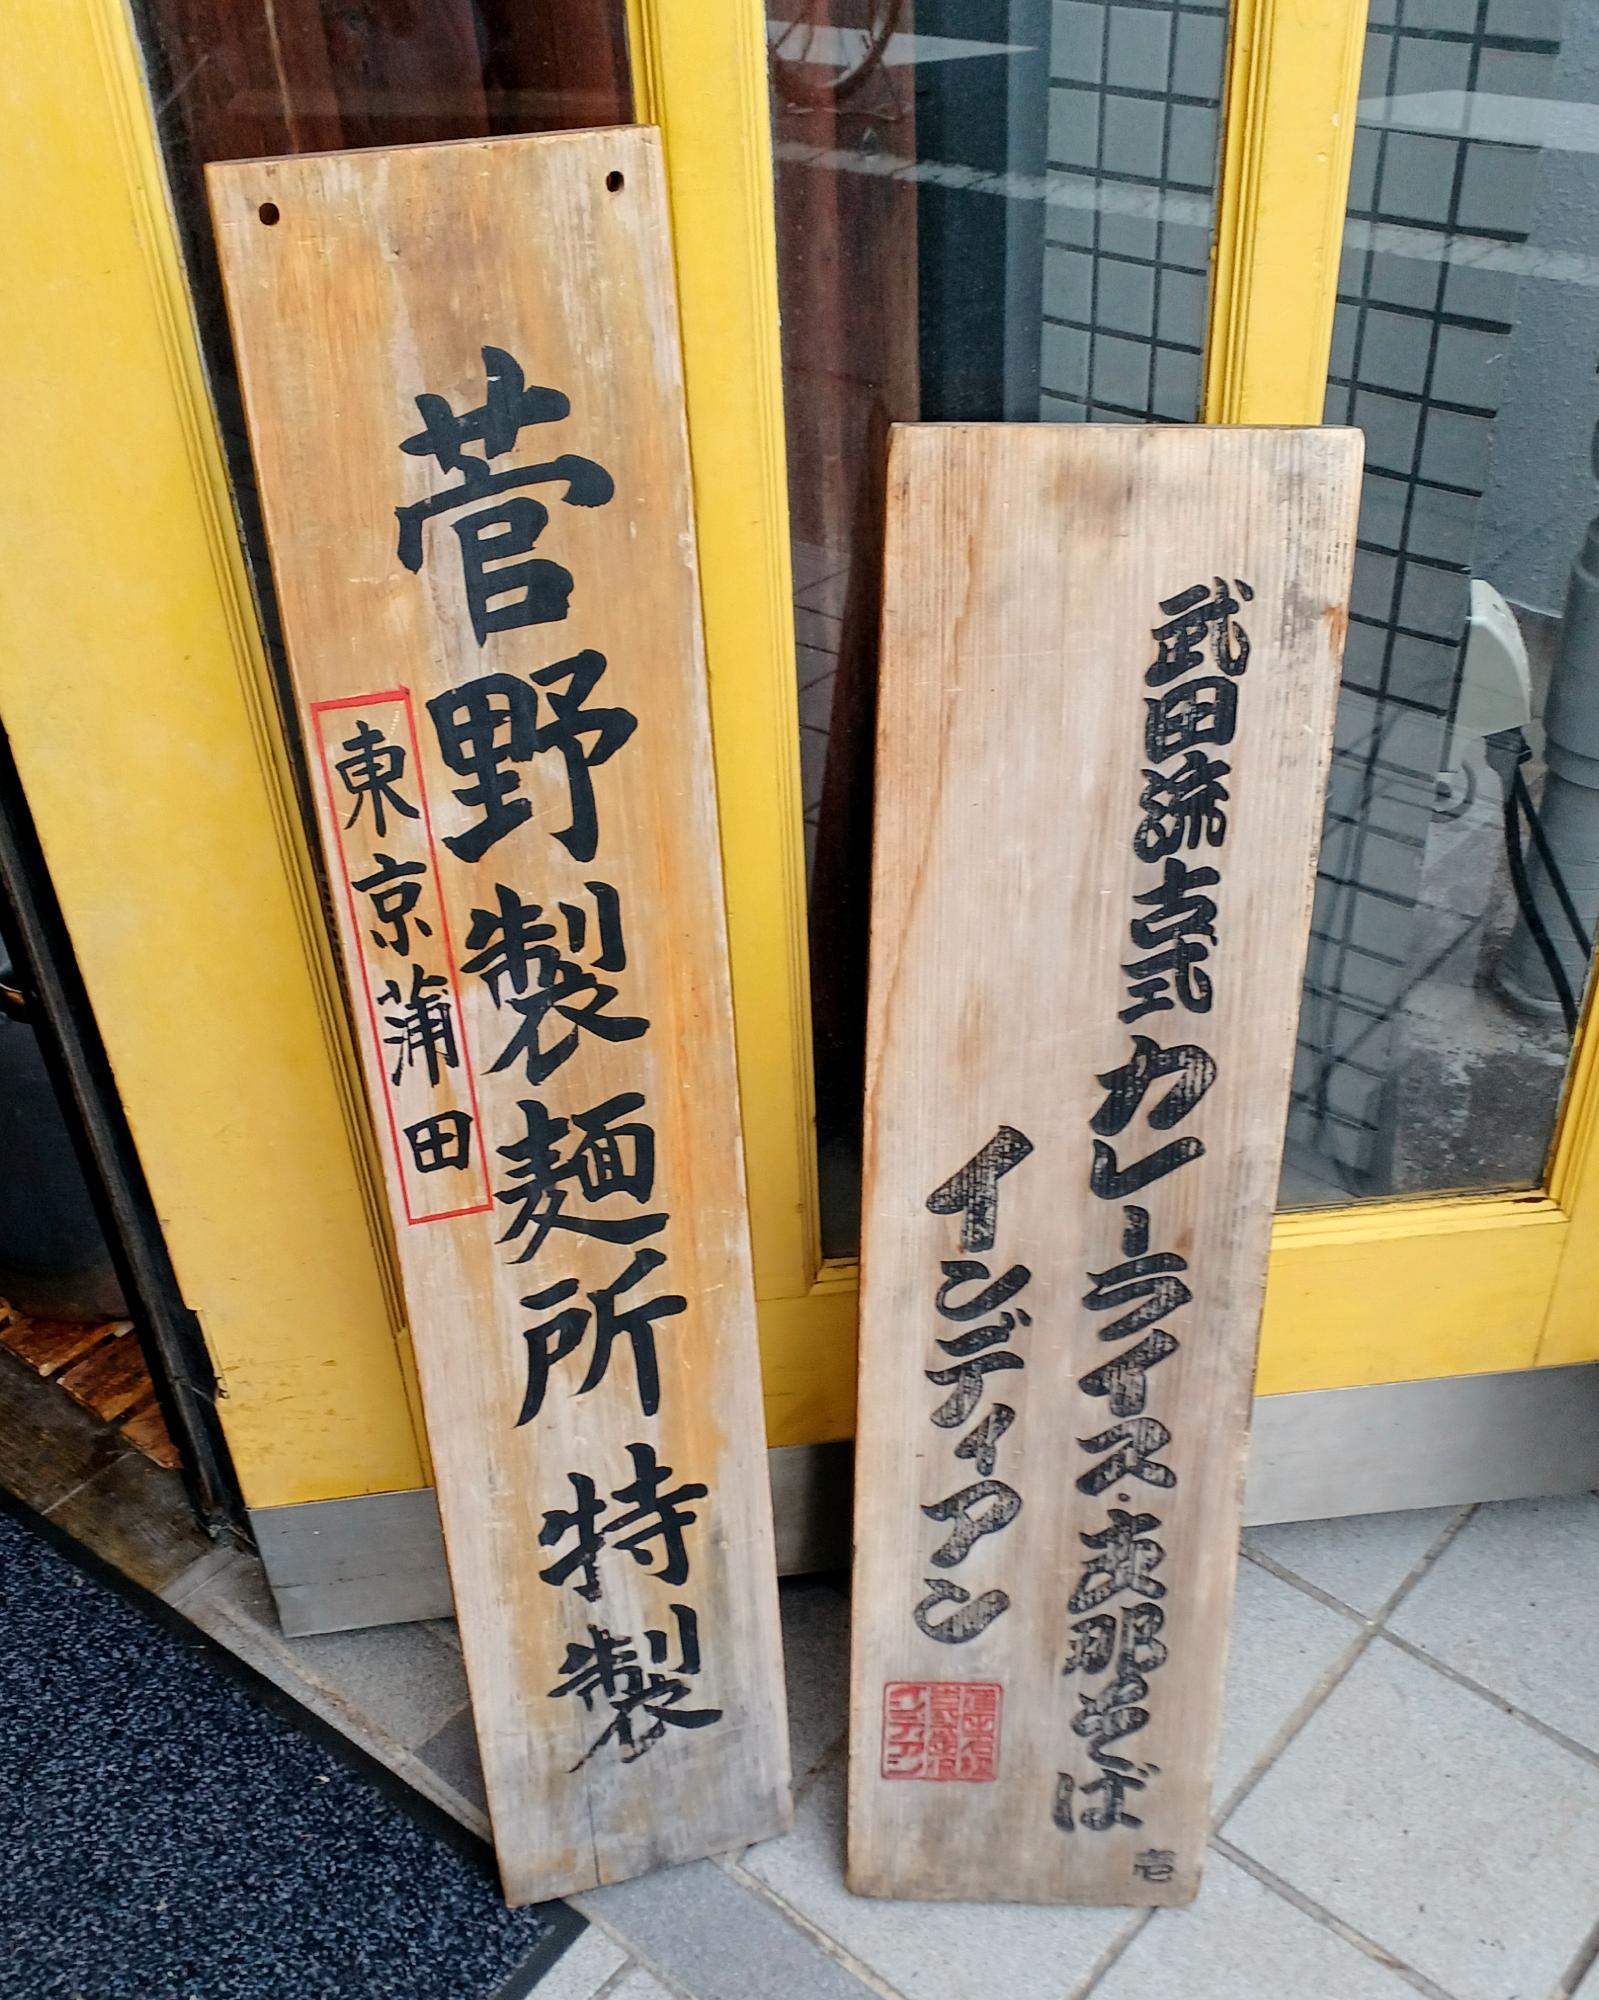 菅野製麺所特製
東京蒲田
武田流古式カレーライス・支那そば
インディアン
壱